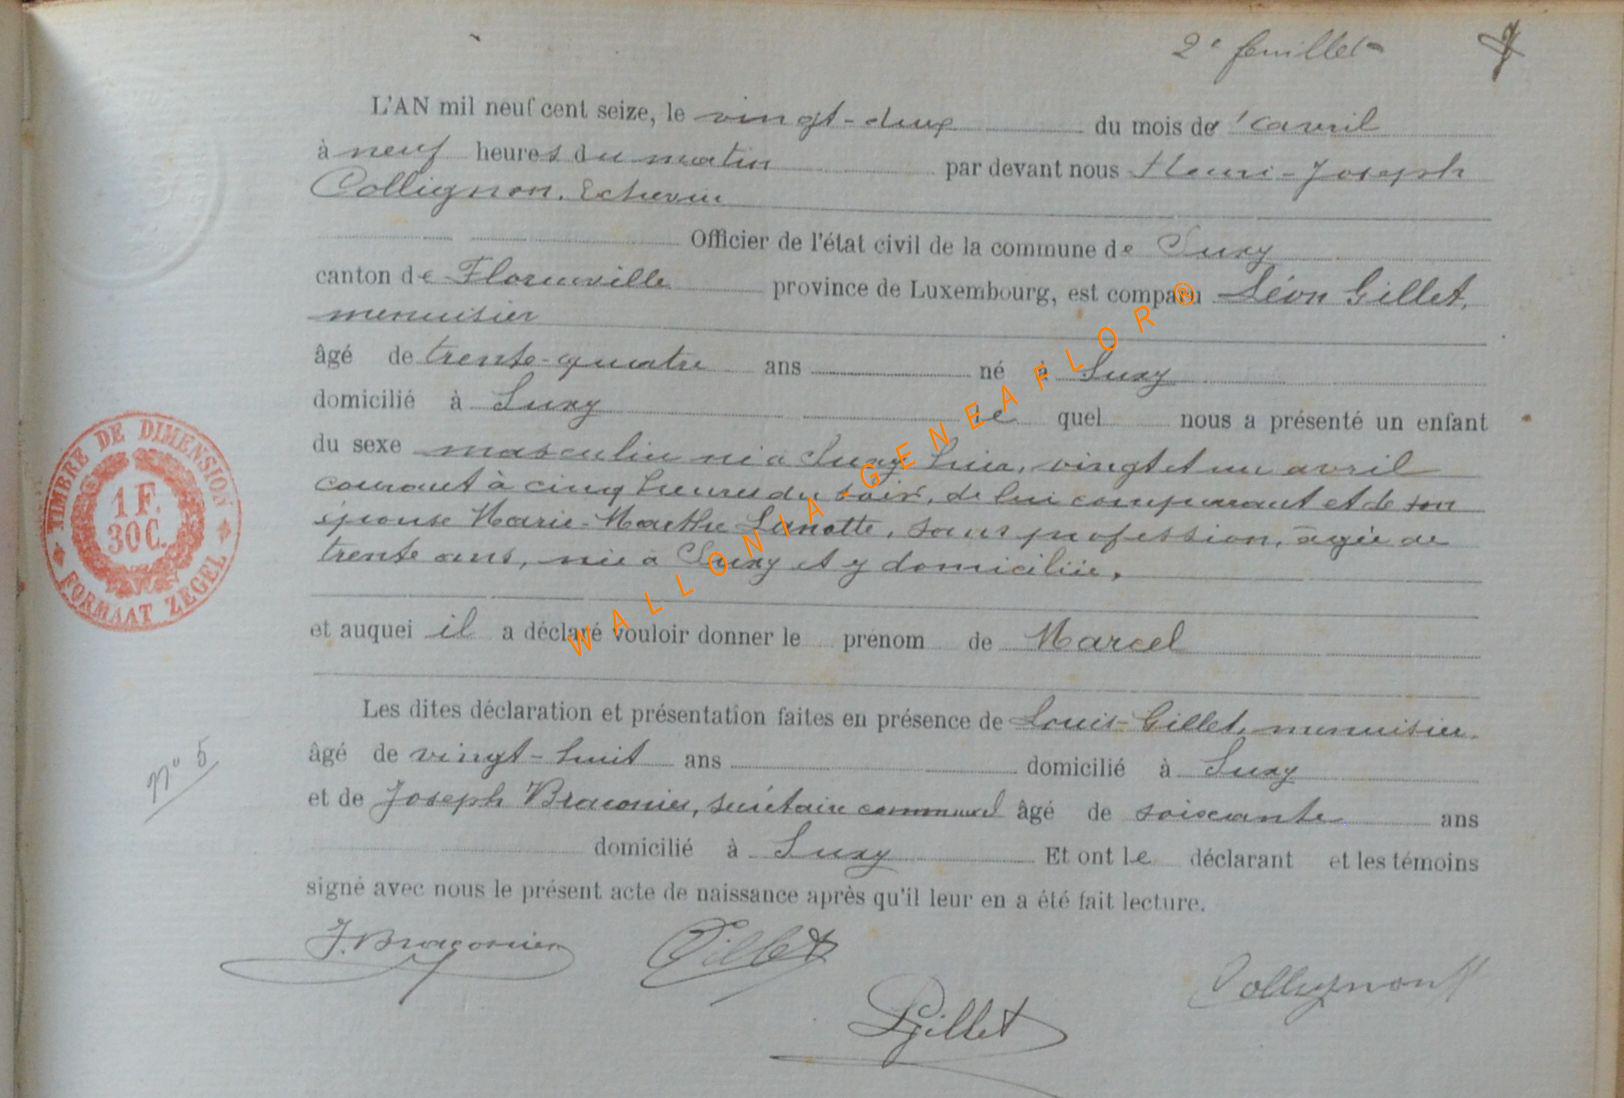 2e feuillet
L'AN mil neuf cent seize, le vingt-deux du mois de 'avril
à neuf heures du matin par devant nous Henri-Joseph
Collignon, Echevin
Officier de l'état civil de la commune de Suxy
canton de Florenville province de Luxembourg, est comparu Léon Gillet,
menuisier
âgé de trente-quatre ans né à Suxy
domicilié à Suxy le quel nous a présenté un enfant
du sexe masculin né à Suxy hier, vingt et un avril
courant à cinq heures du soir, de lui comparant et de son
épouse Marie-Marthe Lanotte, sans profession, âgée de
trente ans, née à Suxy et y domiciliée.
et auquel il a déclaré vouloir donner le prénom de Marcel
Les dites déclaration et présentation faites en présence de Louis Gillet, menuisier.
âgé de vingt-huit ans domicilié à Suxy
et de Joseph Braconier, secrétaire communal âgé de soixante ans
domicilié à Suxy Et ont le déclarant et les témoins
signé avec nous le présent acte de naissance après qu'il leur en a été fait lecture.
J. Braconier Gillet Collignon
LGillet
TIMBRE DE DIMENSION
1 F.
30 C.
FORMAAT ZEGEL
No 5
WALLONIA-GENEAFLOR®